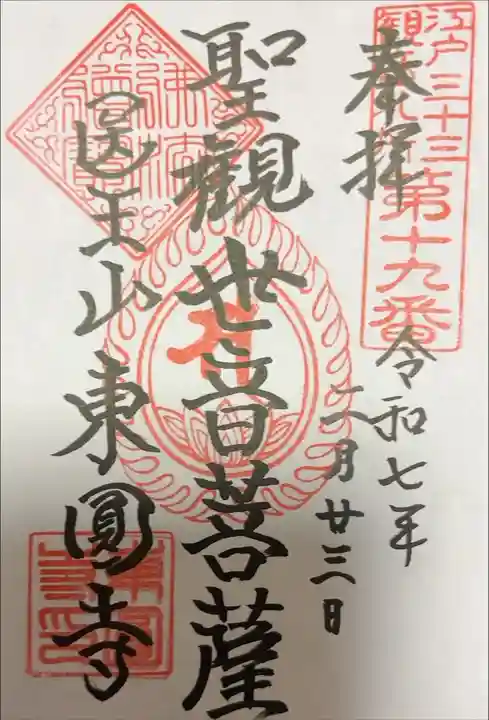 江戸三十三
観音
第十九番
奉拝
令和七年
二月廿三日
聖観世音菩薩
医王山東圓寺
佛法僧寶